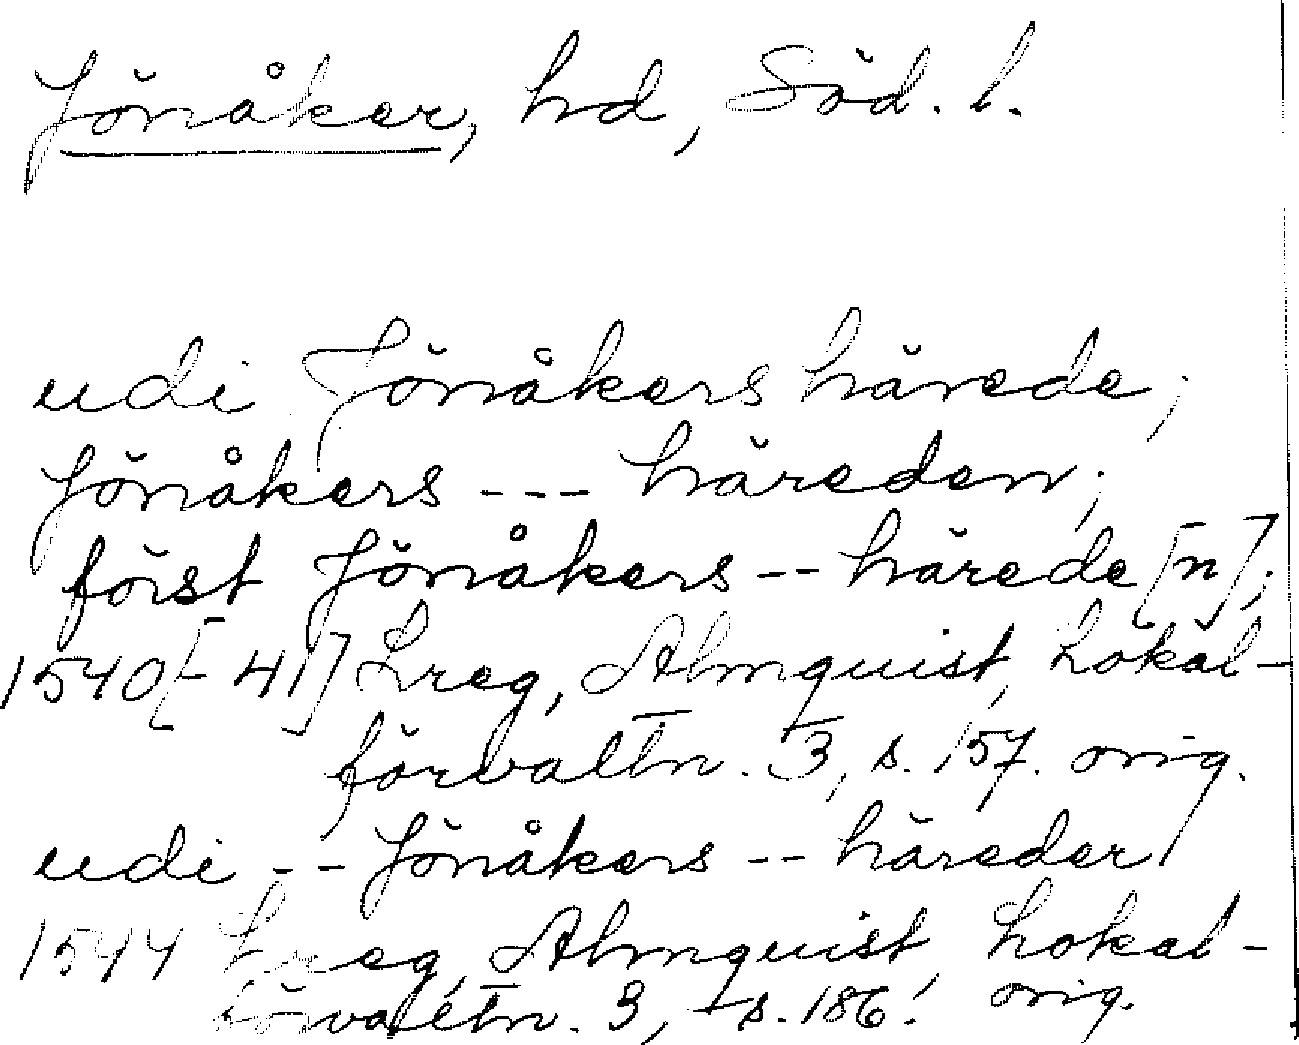 Jönåker, hd, Söd. l.
udi Jönåkers härede;
Jönåkers --- häreden;
först Jönåkers -- härede[n];
1540[-41] Lreg, Almquist, Lokal-
förvaltn. 3, s. 157. orig.
udi -- Jönåkers -- häreder
1544 Lreg, Almquist, Lokal-
förvaltn. 3, s. 186. orig.